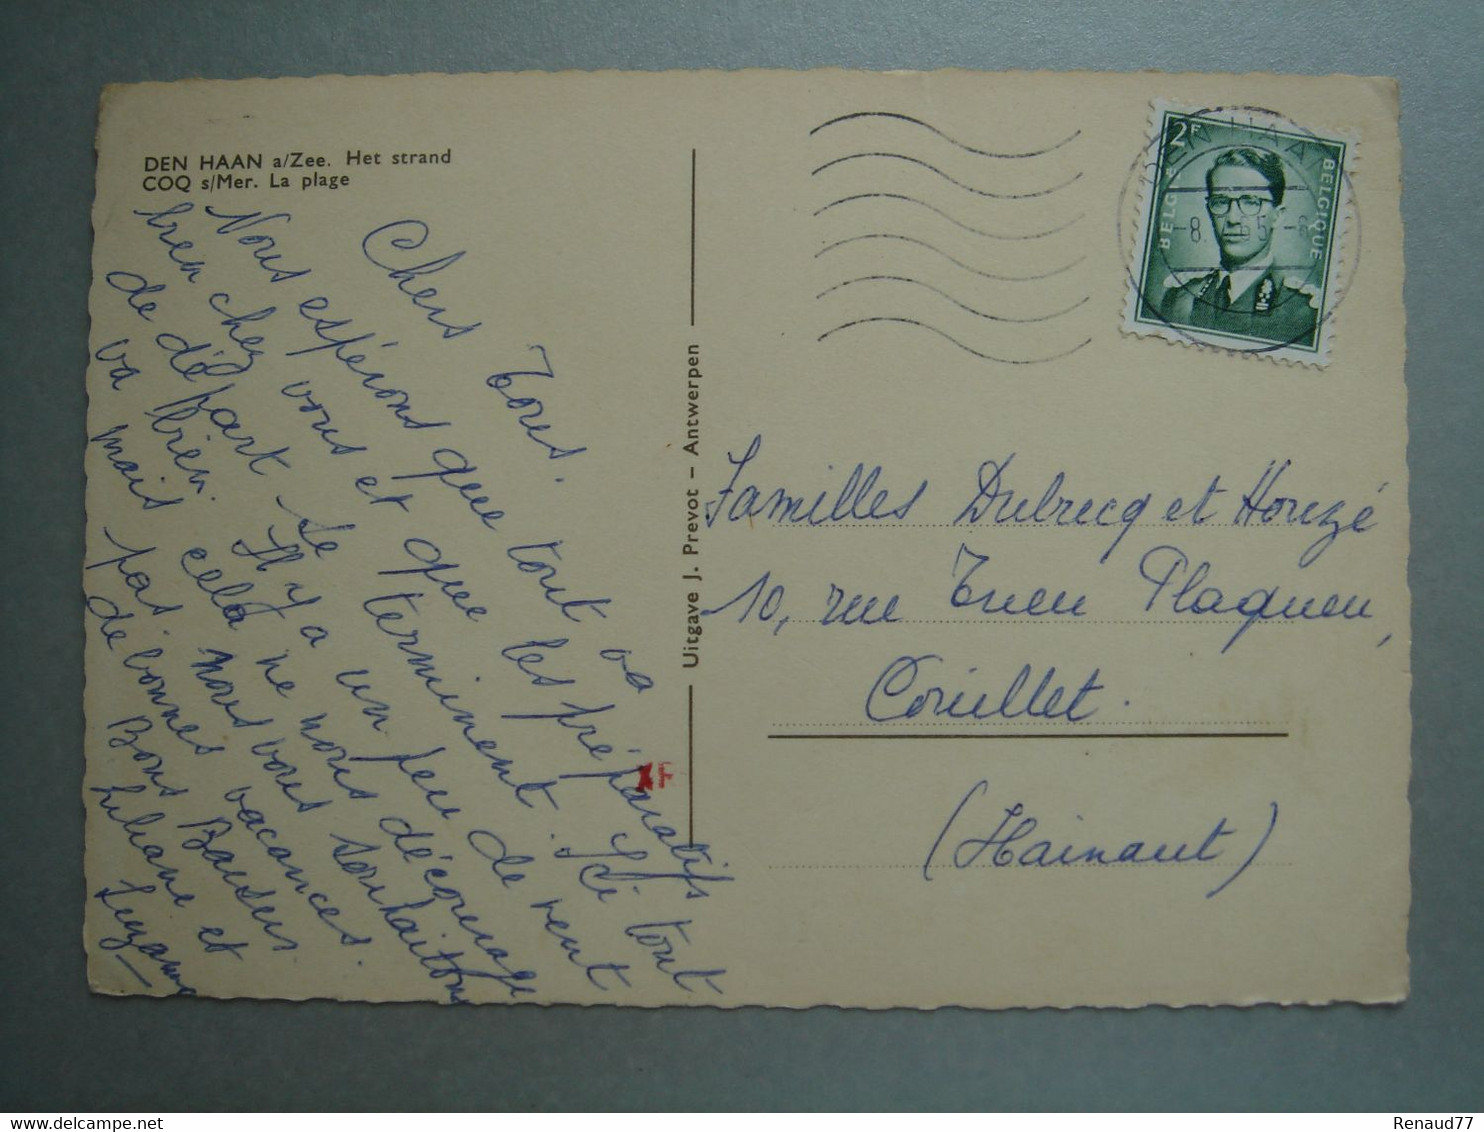 DEN HAAN a/Zee. Het strand
COQ s/Mer. La plage
Chers Tous.
Nous espérons que tout va
bien chez vous et que les préparatifs
de départ se terminent. Ici tout
va bien. Il y a un peu de vent
mais cela ne nous décourage
pas. Nous vous souhaitons
de bonnes vacances.
Bons Baisers
Liliane et
Suzanne
Uitgave J. Prevot – Antwerpen
2F
BELGIQUE
DEN HAAN
-8.
Familles Dubrecq et Houzé
10, rue Trieu Plaqueu,
Couillet.
(Hainaut)
Renaud77